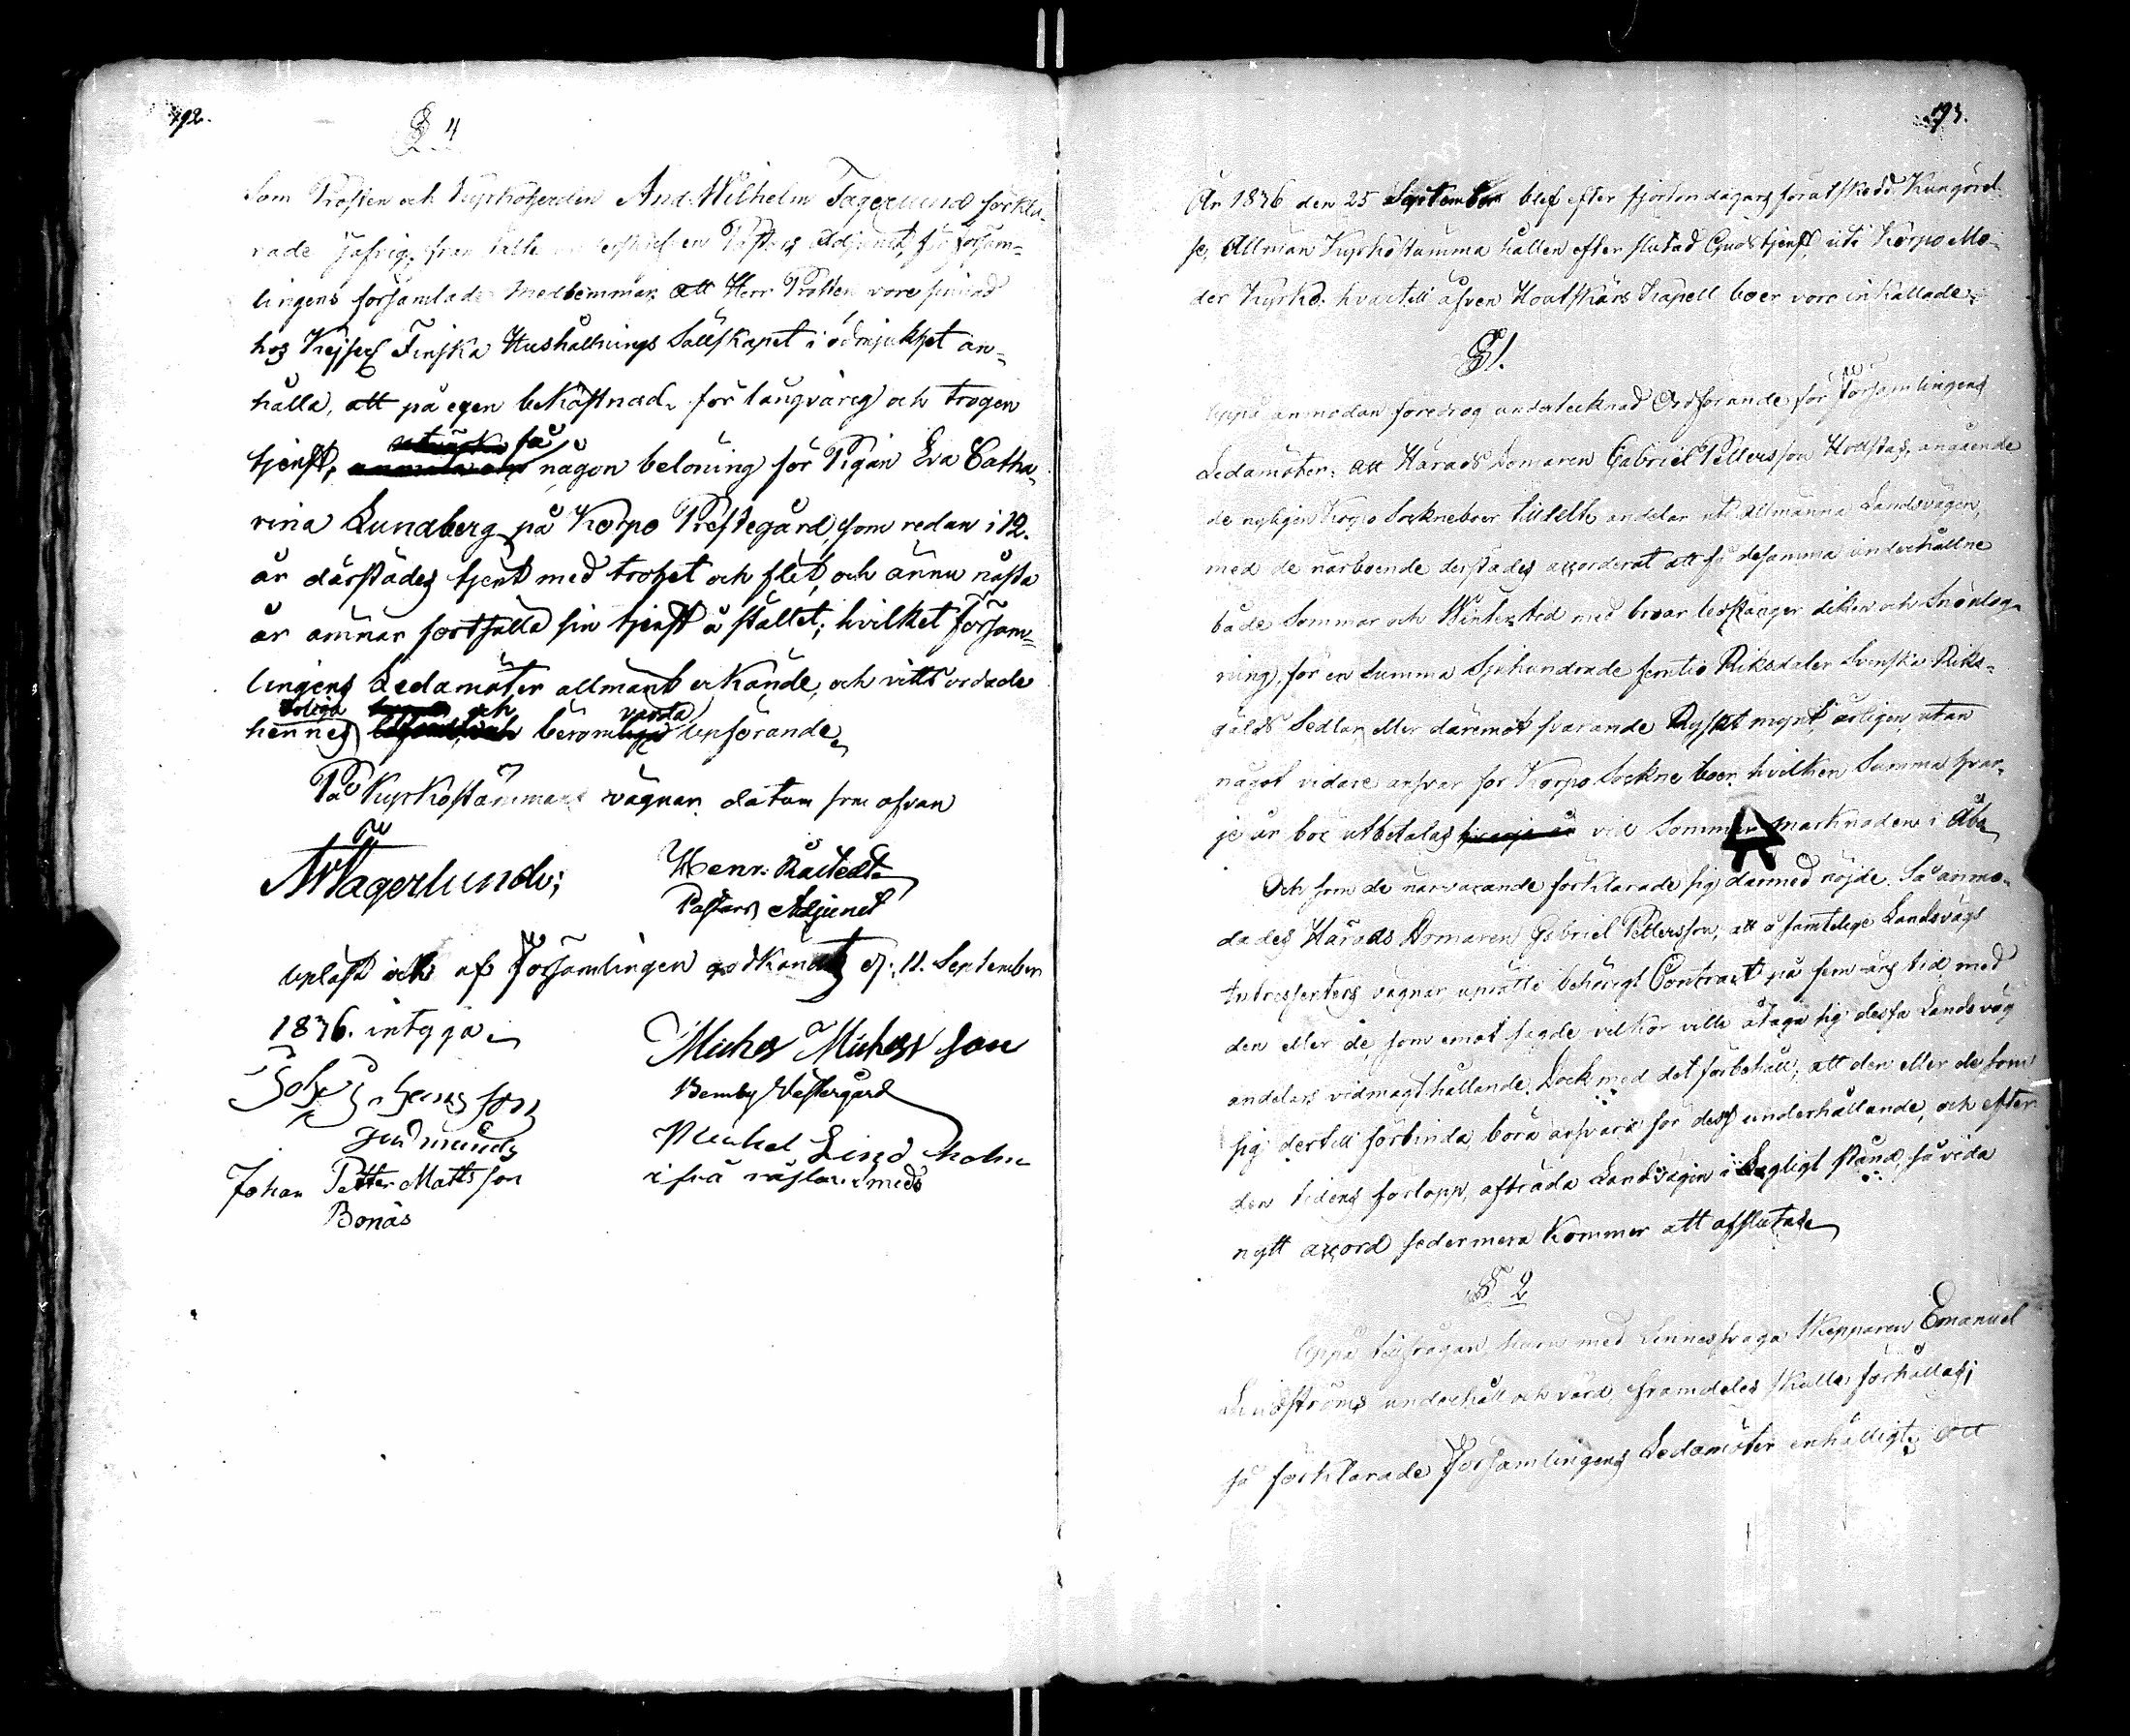 192.
§ 4
Som Prosten och Kyrkoherden And. Wilhelm Fagerlund förkla
rade jäfvig, framstälte Pastors Adjunct, för försam=
lingens församlade Medlemmar att Herr Prosten vore sinnad
hos Kejserl Finska Hushållnings Sällskapet i ödmjukhet an=
hålla, att på egen bekåstnad, för långvarig och trogen
få
tjenst, någon belöning för Pigan Eva Catha
rina Lundberg på Korpo Prestegård, som redan i 12.
år därstädes tjent med trohet och flit, och ännu nästa
år ämnar fortsätta sin tjenst å stället; hvilket Försam=
lingens Ledamöter allmänt erkände, och vittsordade
troliga och
hennes berömvärda upförande
På Kyrkostämmans vägnar datum som ofvan
AWFagerlund;
Henr: Råstedt
Pastors Adjunct
upläst och af Församlingen godkändt d: 11. September
1836. intyga
Michel Michelsson
Benby Västergård
Johan Petter Mattsson
Bonäs
Michel Lindholm
ifrå
193.
År 1836 den 25 September blef efter fjorton dagars förutskedd Kungörel=
se, Allmän Kyrkostämma hållen efter slutad Gudstjenst, uti Korpo Mo=
der Kyrka; hvartill äfven Houtskärs Kapell boer voro inkallade;
§ 1.
Uppå anmodan föredrog undertecknad Ordförande för Församlingens
Ledamöter: att Härads Domaren Gabriel Pettersson angående
de nyligen Korpo Sockneboer tilldelte andelar ut Allmänna Landsvägen,
med de närboende derstädes accorderat att få desamma underhållne
både Sommar och Wintertid med broar ledstänger diken och Snöplog=
ning, för en Summa Sjuhundrade femtio Riksdaler Svenska Riks=
gälds Sedlar, eller däremot svarande Ryskt mynt, årligen, utan
något vidare ansvar för Korpo Sockne boer, hvilken Summa hvar=
je år bör utbetalas vid Sommar marknaden i Åbo
Och som de närvarande förklarade sig därmed nöjde. Så anmo=
dades Härads Domaren Gabriel Pettersson, att å samtelige Landsvägs
Intressenters vägnar uprätta behörigt Contract på fem års tid med
den eller de, som emot sagde vilkor ville åtaga sig dessa Landsväg
andelars vidmagthållande. Dock med det förbehåll; att den eller de som
sig dertill förbinda, böra ansvara för dess underhållande, och efter
den tidens förlopp, afträda Landsvägen i Lagligt stånd, så vida
nytt accord sedermera kommer att afslutas
§ 2
Uppå tillfrågan, huru med Sinnessvaga Skepparen Emanuel
Lindströms underhåll och vård, framdeles skulle förhållas;
så förklarade Församlingens Ledamöter enhälligt; att